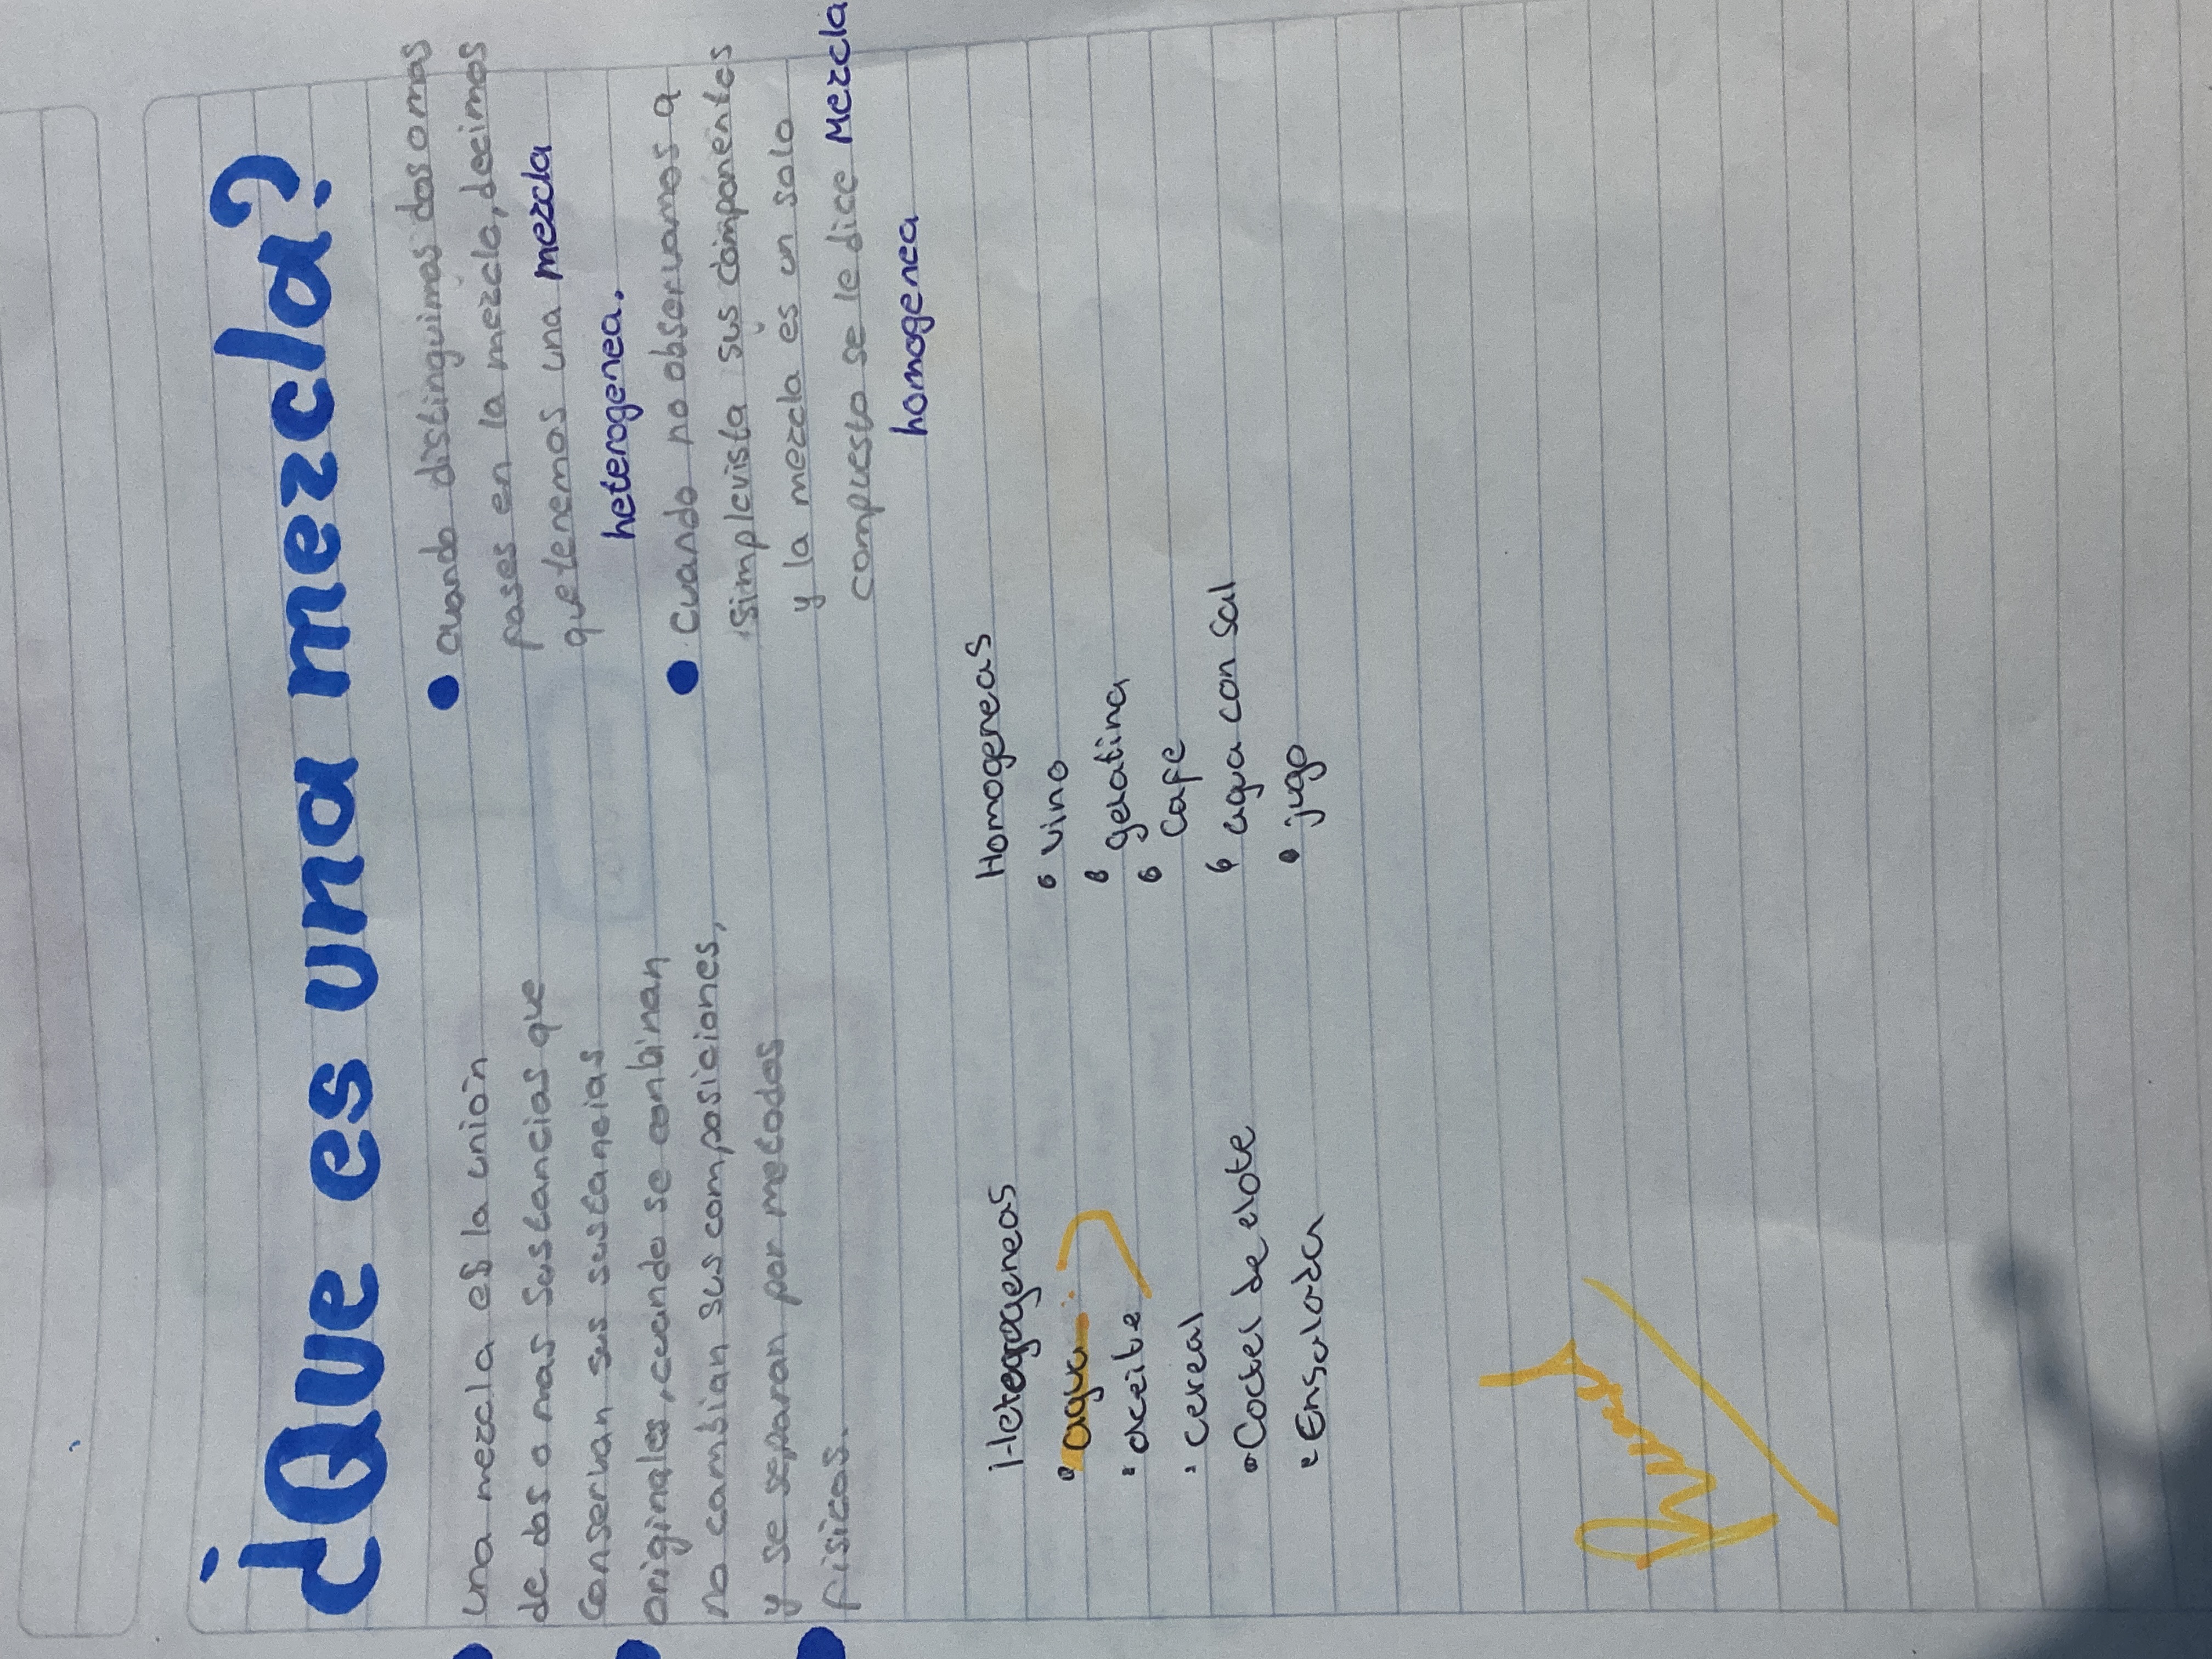 ¿Que es una mezcla?
una mezcla es la unión
de dos o mas sustancias que
Conservan sus sustancias
originales, cuando se combinan
no cambian sus composiciones,
y se separan por metodos
fisicos.
cuando distinguimos dos o mas
fases en la mezcla, decimos
que tenemos una mezcla
heterogenea.
Cuando no observamos a
simple vista sus componentes
y la mezcla es un solo
compuesto se le dice Mezcla
homogenea
Heterogeneas
agua
aceite
cereal
Coctel de elote
Ensalada
Homogeneas
vino
gelatina
Cafe
agua con sal
jugo